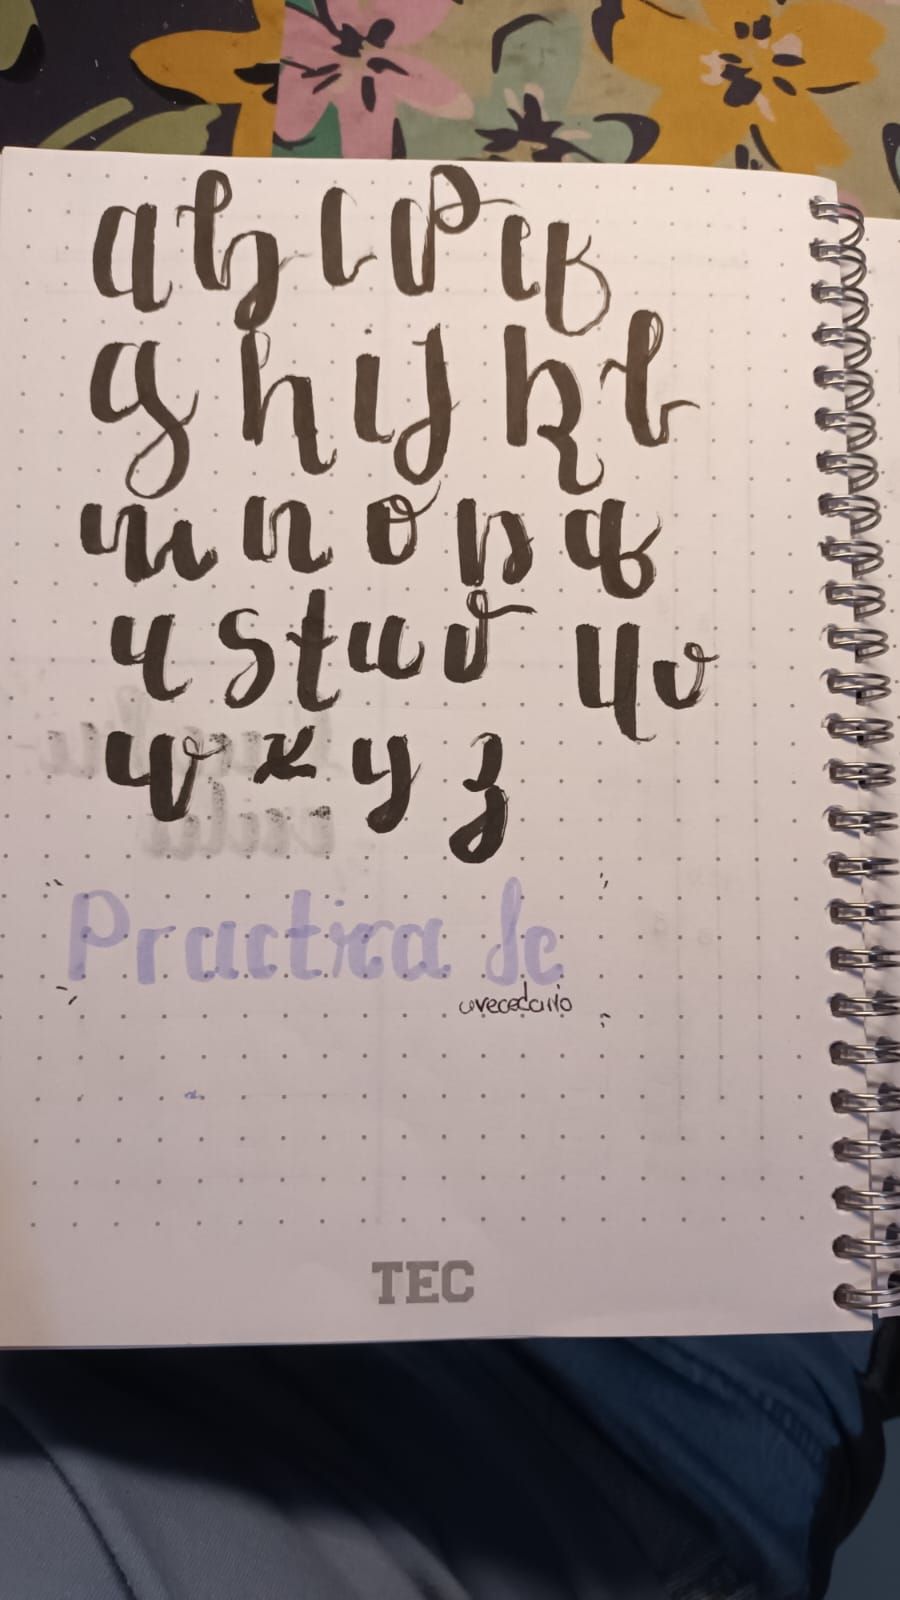 a b c d e f
g h i j k l
m n o p q
r s t u v u v
w x y z
Practica de
avecedario
TEC